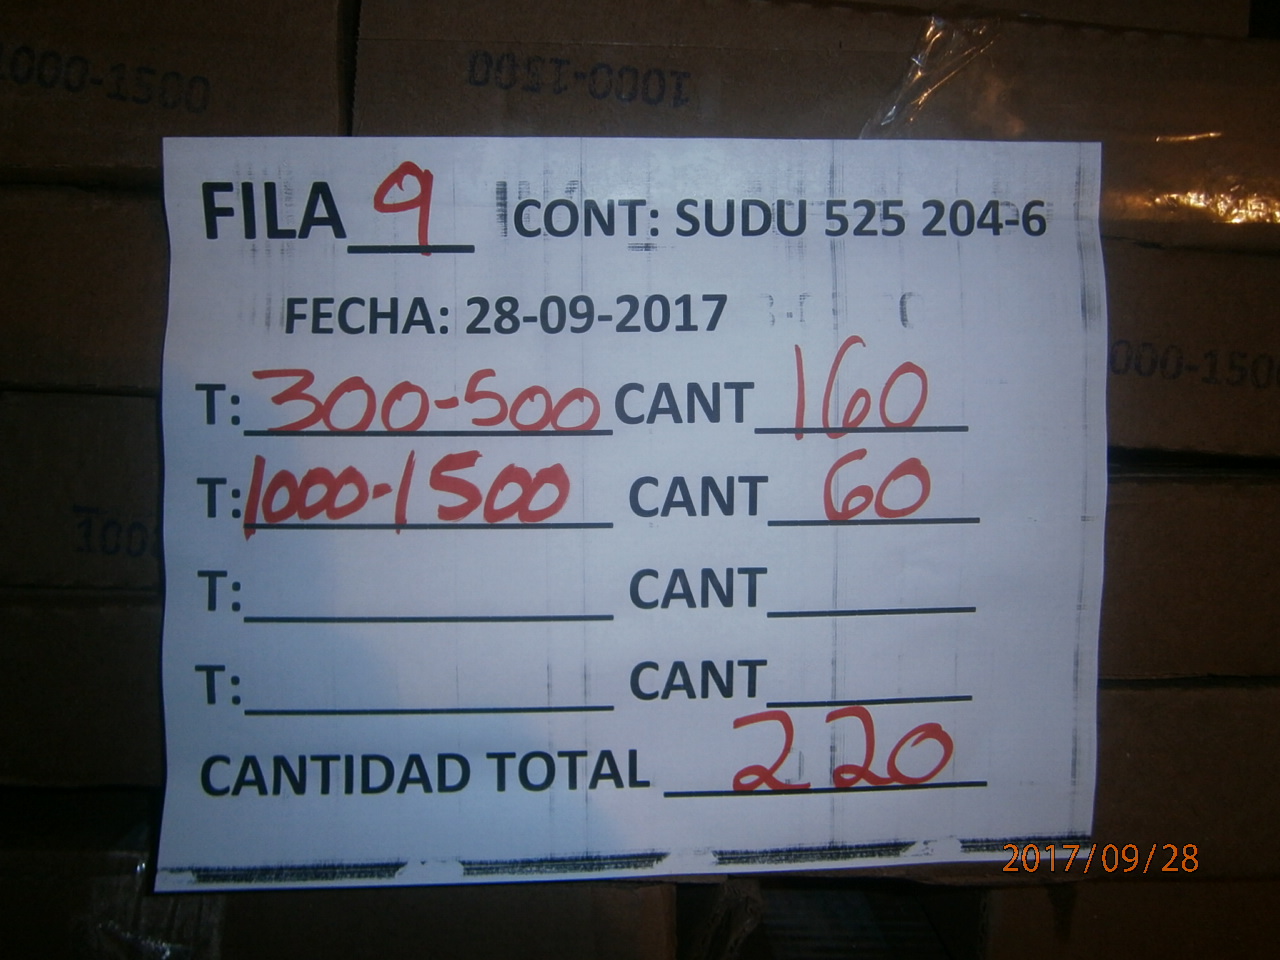 1000-1500
1000-1500
FILA 9 CONT: SUDU 525 204-6
FECHA: 28-09-2017
T: 300-500 CANT 160
T: 1000-1500 CANT 60
T: CANT
T: CANT
CANTIDAD TOTAL 220
2017/09/28